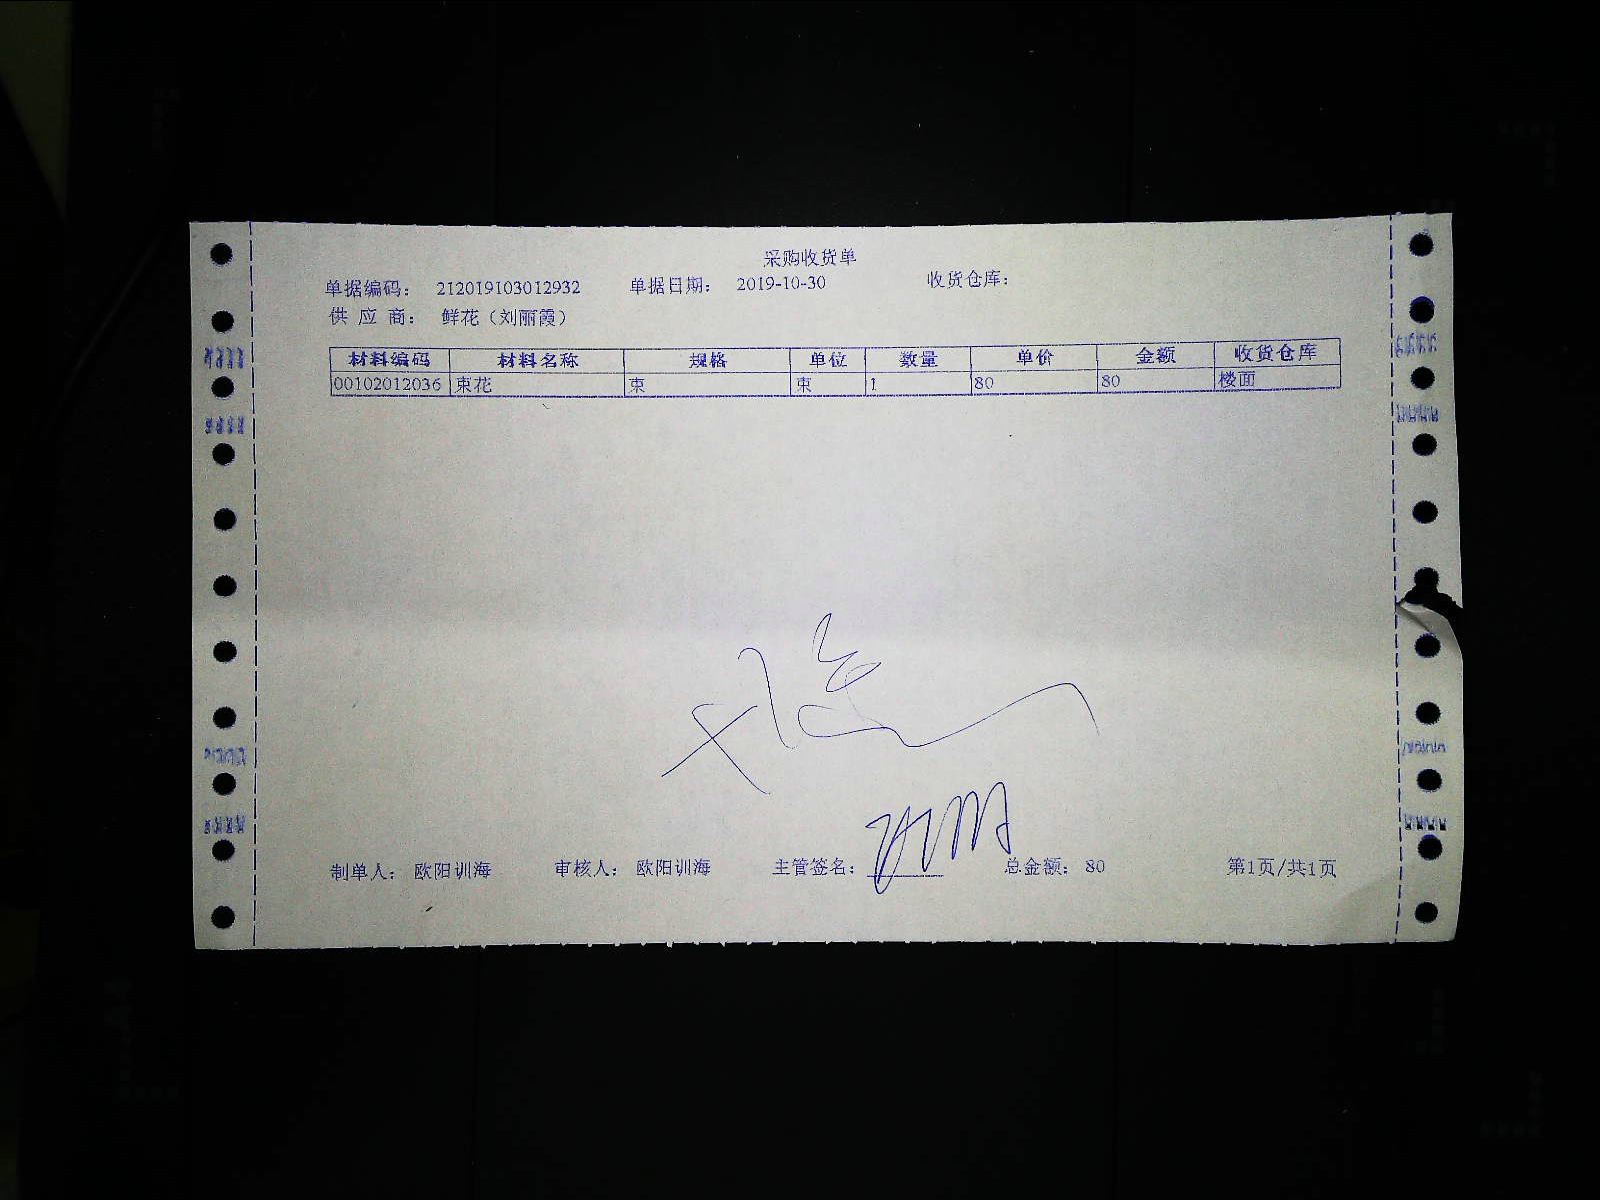 采购收货单
单据编码： 212019103012932 单据日期： 2019-10-30 收货仓库：
供 应 商： 鲜花（刘丽霞）
材料编码 材料名称 规格 单位 数量 单价 金额 收货仓库
00102012036 束花 束 束 1 80 80 楼面
制单人： 欧阳训海 审核人： 欧阳训海 主管签名： 总金额： 80 第1页/共1页